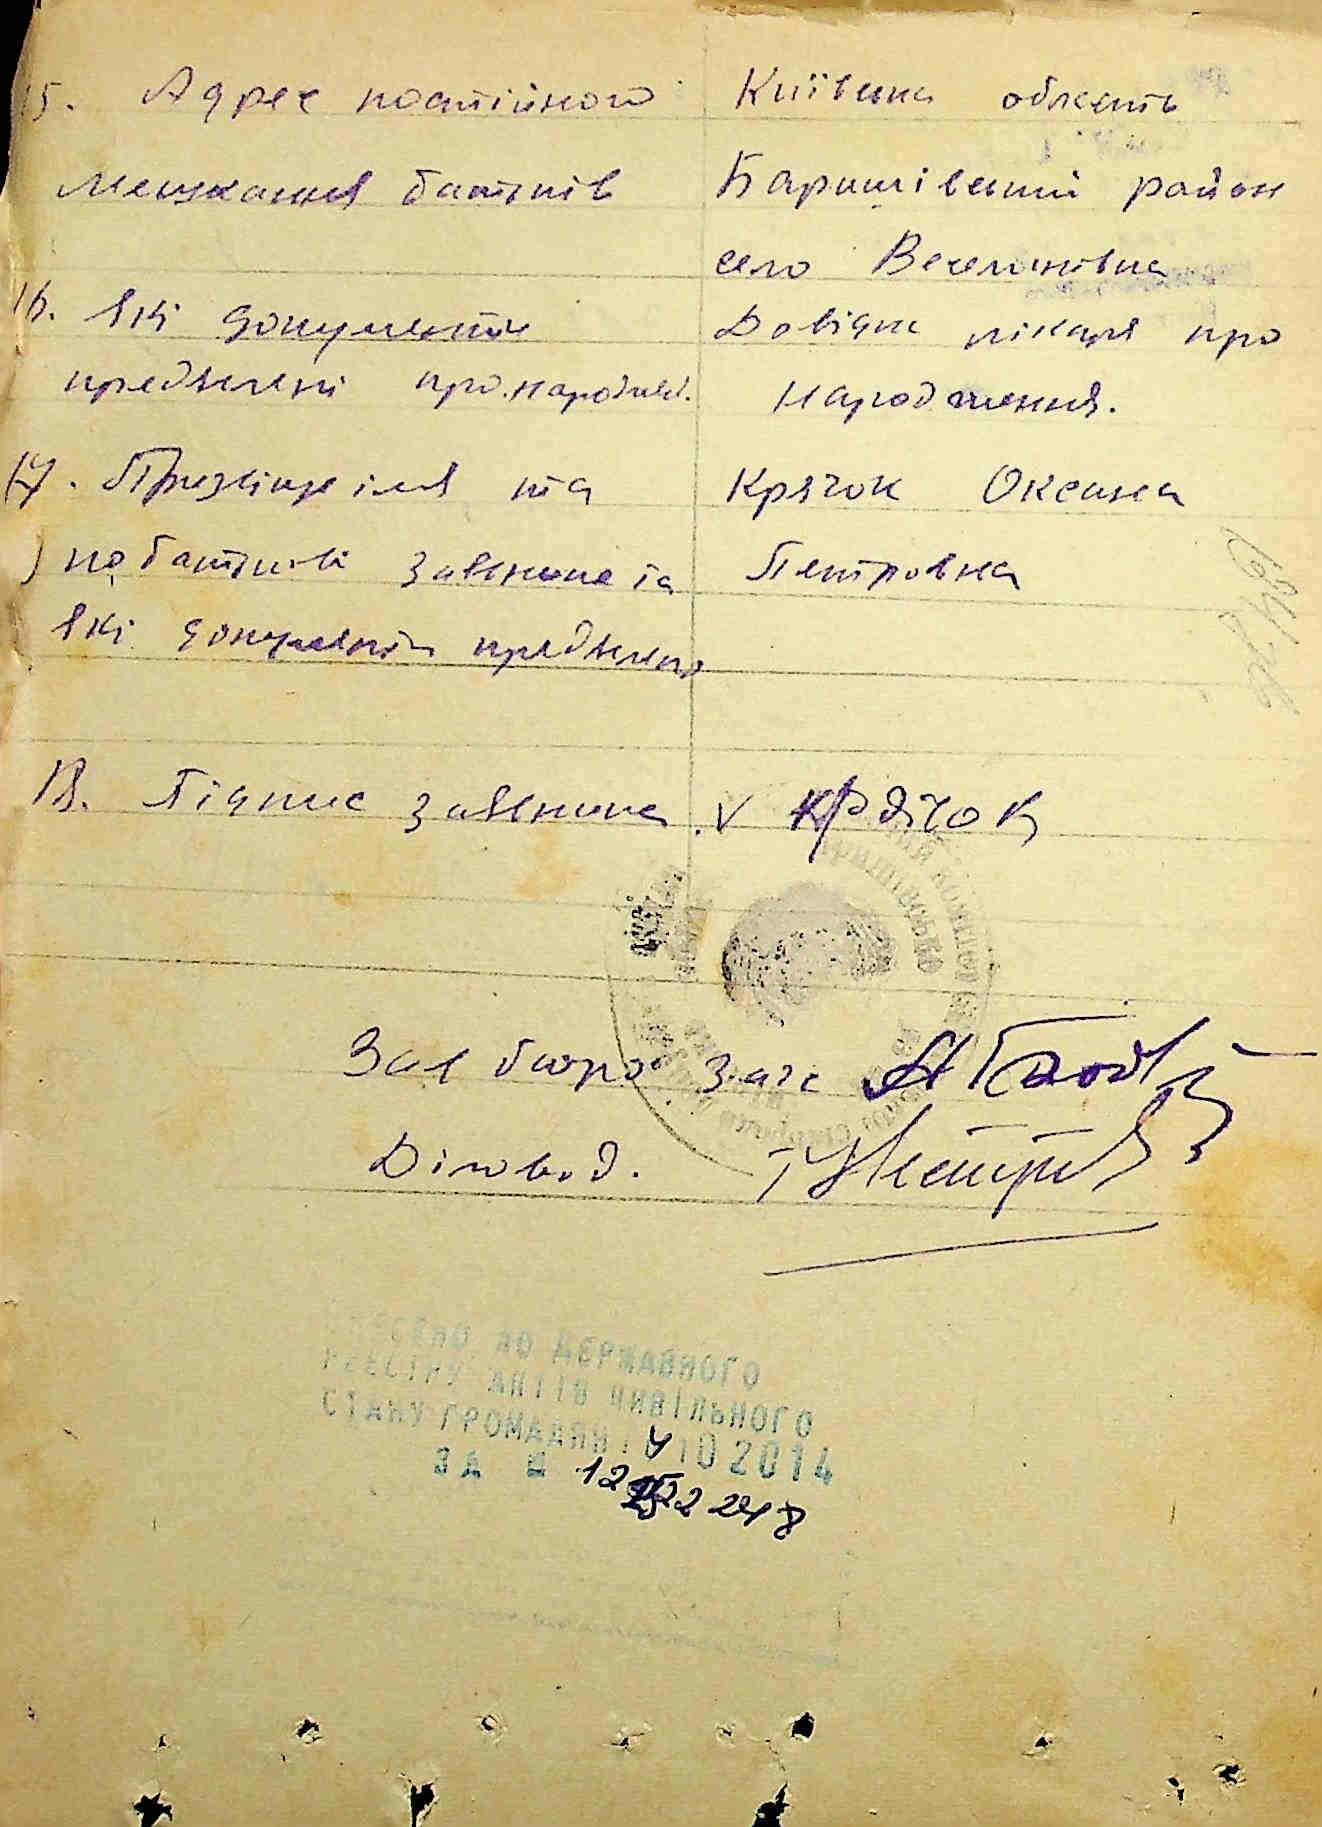 15. Адрес постійного Київська область
мешкання батьків Баришівський район
село Веселинівка
16. Які документи Довідка лікаря про
предявлені про народжен. народження.
17. Прізвище імя та Крячок Оксана
по батькові заявника та Петровна
які документи предявлено
18. Підпис заявника. V Крячок
Зав бюро загс
Діловод.
ВНЕСЕНО ДО ДЕРЖАВНОГО
РЕЄСТРУ АКТІВ ЦИВІЛЬНОГО
СТАНУ ГРОМАДЯН 10 2014
ЗА №